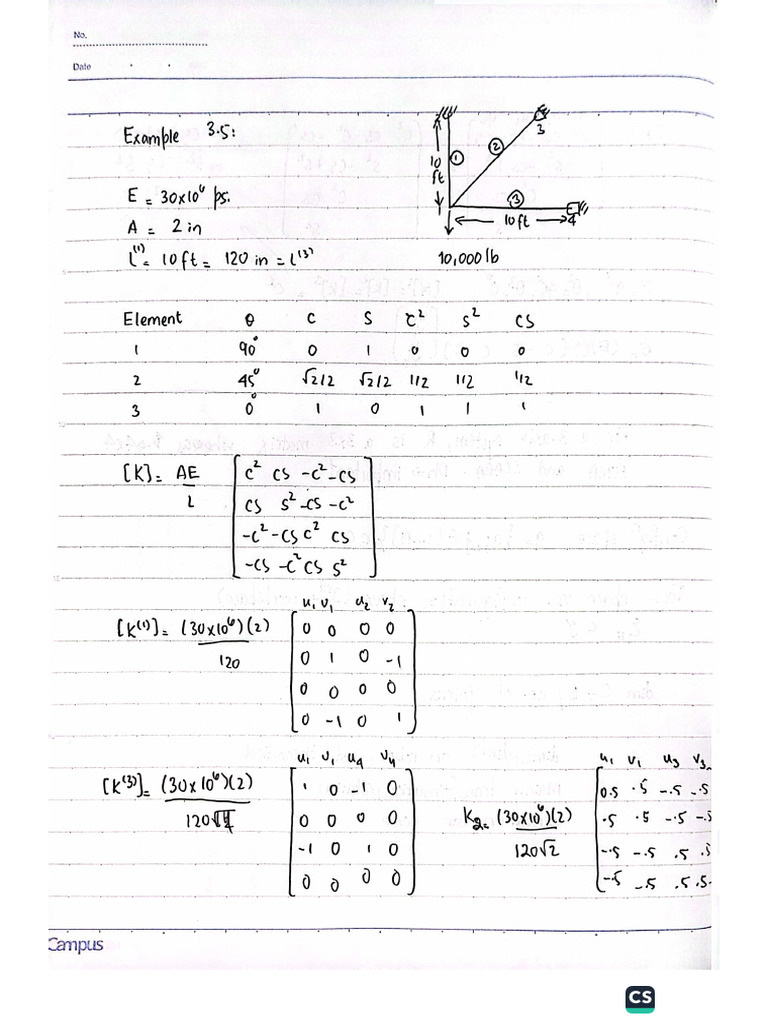 No.
Date
Example 3.5:
E = 30x10⁶ psi
A = 2 in
L⁽¹⁾= 10ft = 120 in = L⁽³⁾
10 ft
1
2
3
3
4
10ft
10,000 lb
Element θ C S C² S² CS
1 90° 0 1 0 0 0
2 45° √2/2 √2/2 1/2 1/2 1/2
3 0° 1 0 1 1 1
[K] = AE/L
C² CS -C² -CS
CS S² -CS -C²
-C² -CS C² CS
-CS -C² CS S²
u₁ v₁ u₂ v₂
[K⁽¹⁾] = (30x10⁶)(2)/120
0 0 0 0
0 1 0 -1
0 0 0 0
0 -1 0 1
u₁ v₁ u₄ v₄
[K⁽³⁾] = (30x10⁶)(2)/120
1 0 -1 0
0 0 0 0
-1 0 1 0
0 0 0 0
u₁ v₁ u₃ v₃
K₂ = (30x10⁶)(2)/120√2
0.5 .5 -.5 -.5
.5 .5 -.5 -.5
-.5 -.5 .5 .5
-.5 -.5 .5 .5
Campus
CS